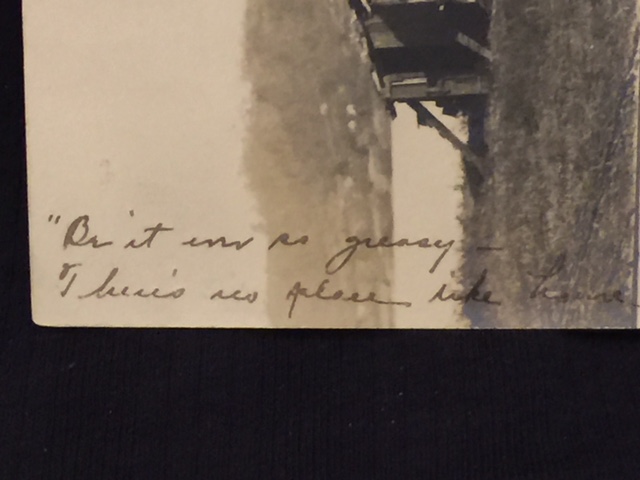 "Be it ever so greasy –
There's no place like home